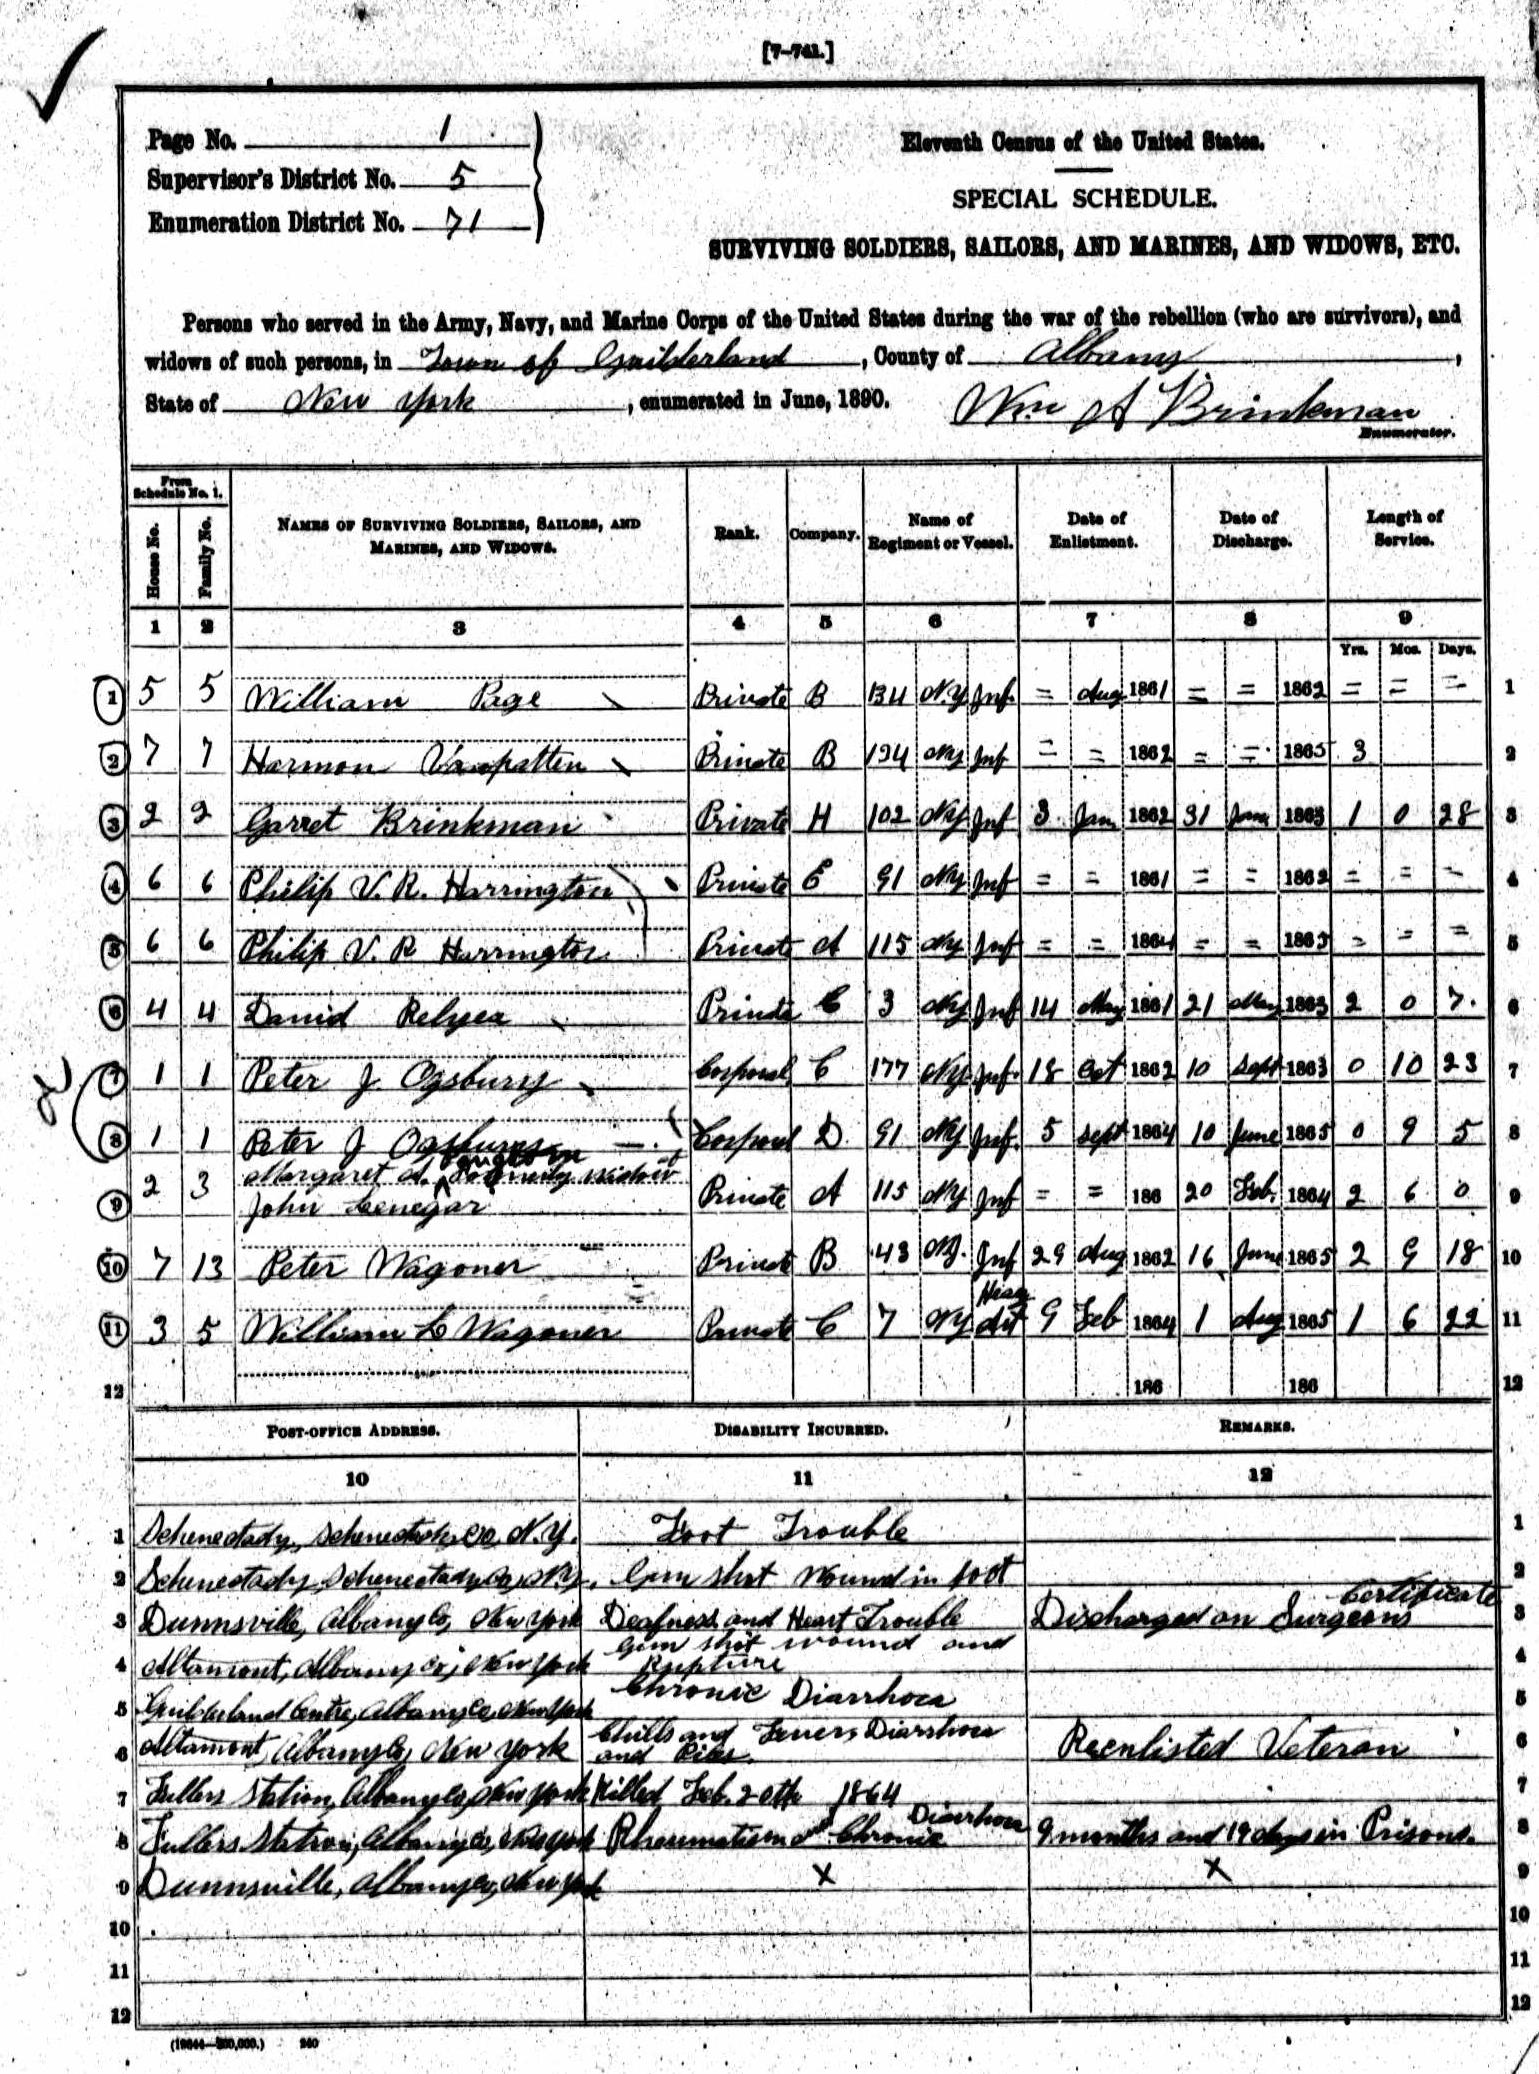 [7-741.]
Page No. 1
Supervisor's District No. 5
Enumeration District No. 71
Eleventh Census of the United States.
SPECIAL SCHEDULE.
SURVIVING SOLDIERS, SAILORS, AND MARINES, AND WIDOWS, ETC.
Persons who served in the Army, Navy, and Marine Corps of the United States during the war of the rebellion (who are survivors), and
widows of such persons, in Town of Guilderland, County of Albany,
State of New York, enumerated in June, 1890. Wm A Brinkman
Enumerator.
From Schedule No. 1. House No. Family No. NAMES OF SURVIVING SOLDIERS, SAILORS, AND MARINES, AND WIDOWS. Rank. Company. Name of Regiment or Vessel. Date of Enlistment. Date of Discharge. Length of Service.
1 2 3 4 5 6 7 8 9
Yrs. Mos. Days.
1 5 5 William Page Private B 134 N.Y Inf. = Aug 1861 = = 1862 = = = 1
2 7 7 Harmon Vanpatten Private B 134 NY Inf = = 1862 = = 1865 3 2
3 2 2 Garret Brinkman Private H 102 NY Inf 3 Jan 1862 31 Jan 1863 1 0 28 3
4 6 6 Philip V. R. Harrington Private E 91 NY Inf = = 1861 = = 1862 = = = 4
5 6 6 Philip V. R Harrington Private A 115 NY Inf = = 1864 = = 1865 = = = 5
6 4 4 David Relyea Private C 3 NY Inf 14 May 1861 21 May 1863 2 0 7. 6
7 1 1 Peter J Ogsbury Corporal C 177 NY Inf. 18 Oct 1862 10 Sept 1863 0 10 23 7
8 1 1 Peter J Ogsbury Corporal D. 91 NY Inf. 5 Sept 1864 10 June 1865 0 9 5 8
Margaret A. formerly widow of
9 2 3 John Cenegar Private A 115 NY Inf = = 186 20 Feb. 1864 2 6 0 9
10 7 13 Peter Wagoner Private B 43 NY. Inf 29 Aug 1862 16 June 1865 2 9 18 10
11 3 5 William C Wagoner Private C 7 NY Heavy Art 9 Feb 1864 1 Aug 1865 1 6 22 11
12 186 186 12
POST-OFFICE ADDRESS. DISABILITY INCURRED. REMARKS.
10 11 12
1 Schenectady, Schenectady Co, N.Y. Foot Trouble 1
2 Schenectady, Schenectady Co, N.Y. Gun shot Wound in foot 2
3 Dunnsville, Albany Co, New York Deafness and Heart Trouble Discharged on Surgeons Certificate 3
4 Altamont, Albany Co, New York Gun shot wound and Rupture 4
5 Guilderland Centre, Albany Co, New York Chronic Diarrhoea 5
6 Altamont, Albany Co, New York Chills and Fever, Diarrhoea and Piles. Reenlisted Veteran 6
7 Fullers Station, Albany Co, New York Killed Feb. 20th 1864 7
8 Fullers Station, Albany Co, New York Rheumatism and Chronic Diarrhoea 9 months and 19 days in Prisons. 8
9 Dunnsville, Albany Co, New York X X 9
10 10
11 11
12 12
240